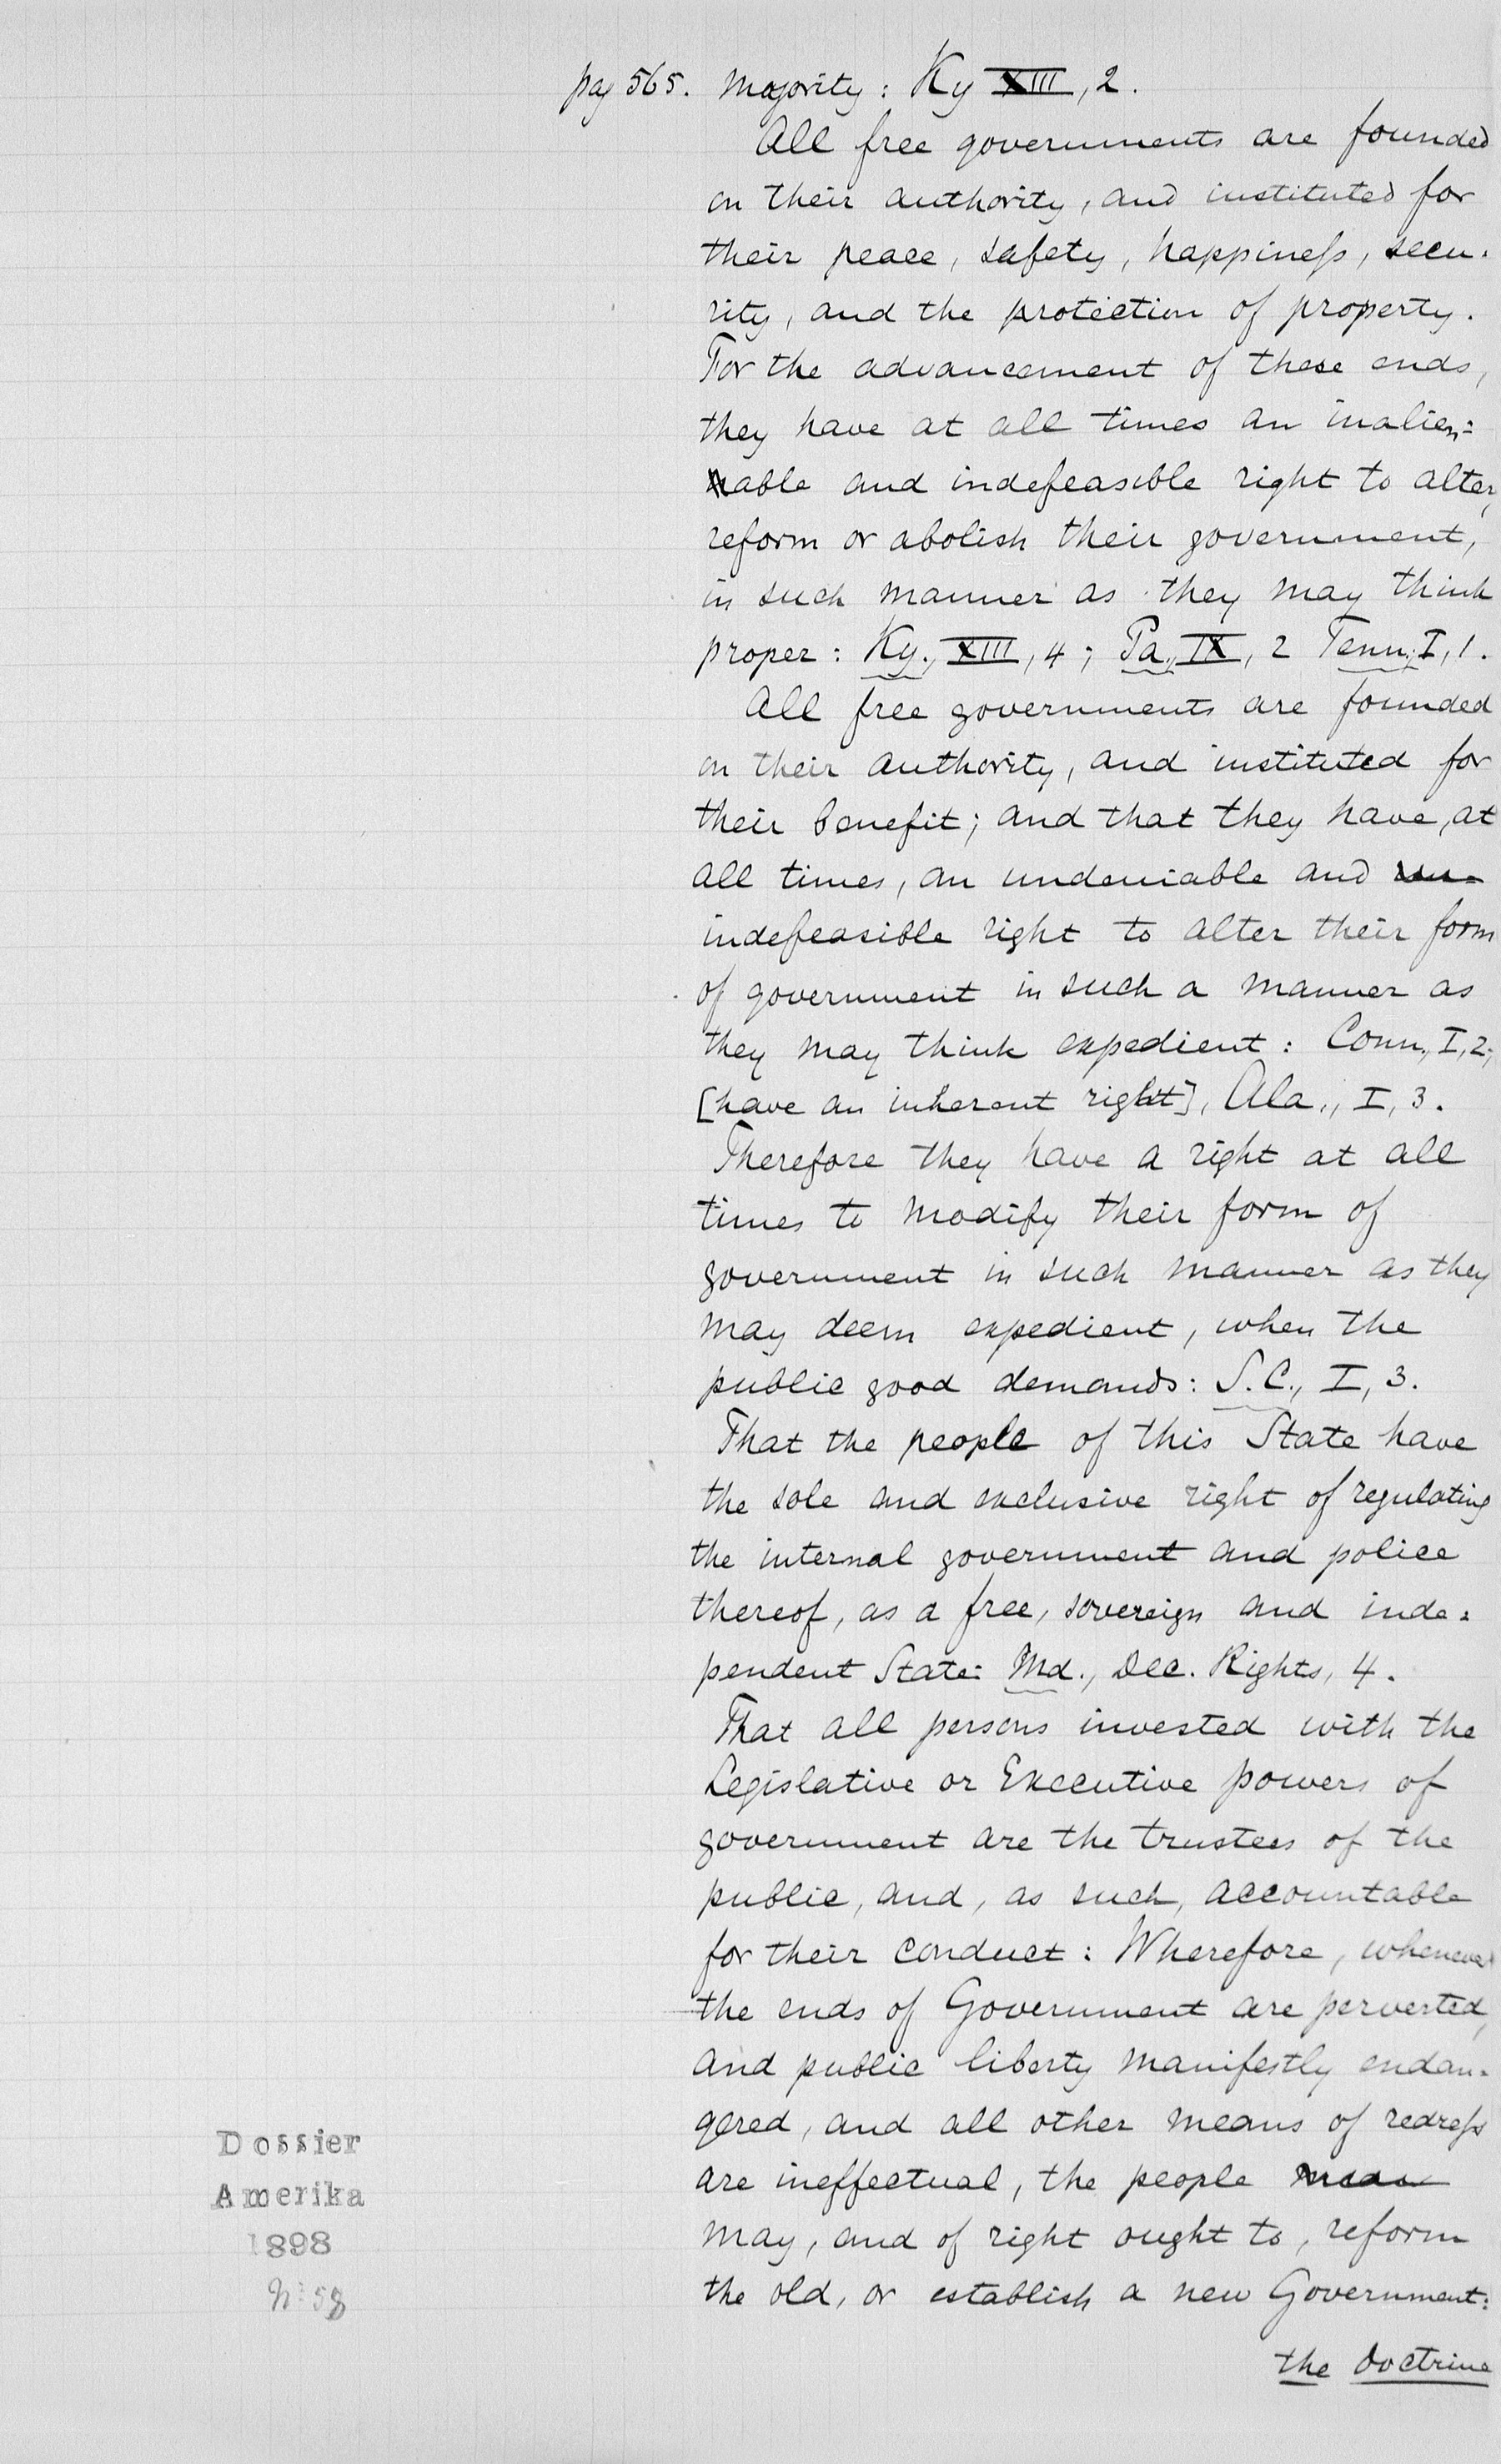 pag 565. Majority: Ky XIII, 2.
All free governments are founded
on their authority, and instituted for
their peace, safety, happiness, secu-
rity, and the protection of property.
For the advancement of these ends,
they have at all times an inalien=
able and indefeasible right to alter,
reform or abolish their government,
in such manner as they may think
proper: Ky., XIII, 4; Pa, IX, 2 Tenn, I, 1.
All free governments are founded
on their authority, and instituted for
their benefit; and that they have, at
all times, an undeniable and
indefeasible right to alter their form
of government in such a manner as
they may think expedient: Conn., I, 2;
[have an inherent right], Ala., I, 3.
Therefore they have a right at all
times to modify their form of
government in such manner as they
may deem expedient, when the
public good demands: S.C., I, 3.
That the people of this State have
the sole and exclusive right of regulating
the internal government and police
thereof, as a free, sovereign and inde=
pendent State: Md., Dec. Rights, 4.
That all persons invested with the
Legislative or Executive powers of
government are the trustees of the
public, and, as such, accountable
for their conduct: Wherefore, whenever
the ends of Government are perverted,
and public liberty manifestly endan-
gered, and all other means of redress
are ineffectual, the people
may, and of right ought to, reform
the old, or establish a new Government:
the doctrine
Dossier
Amerika
1898
No 58